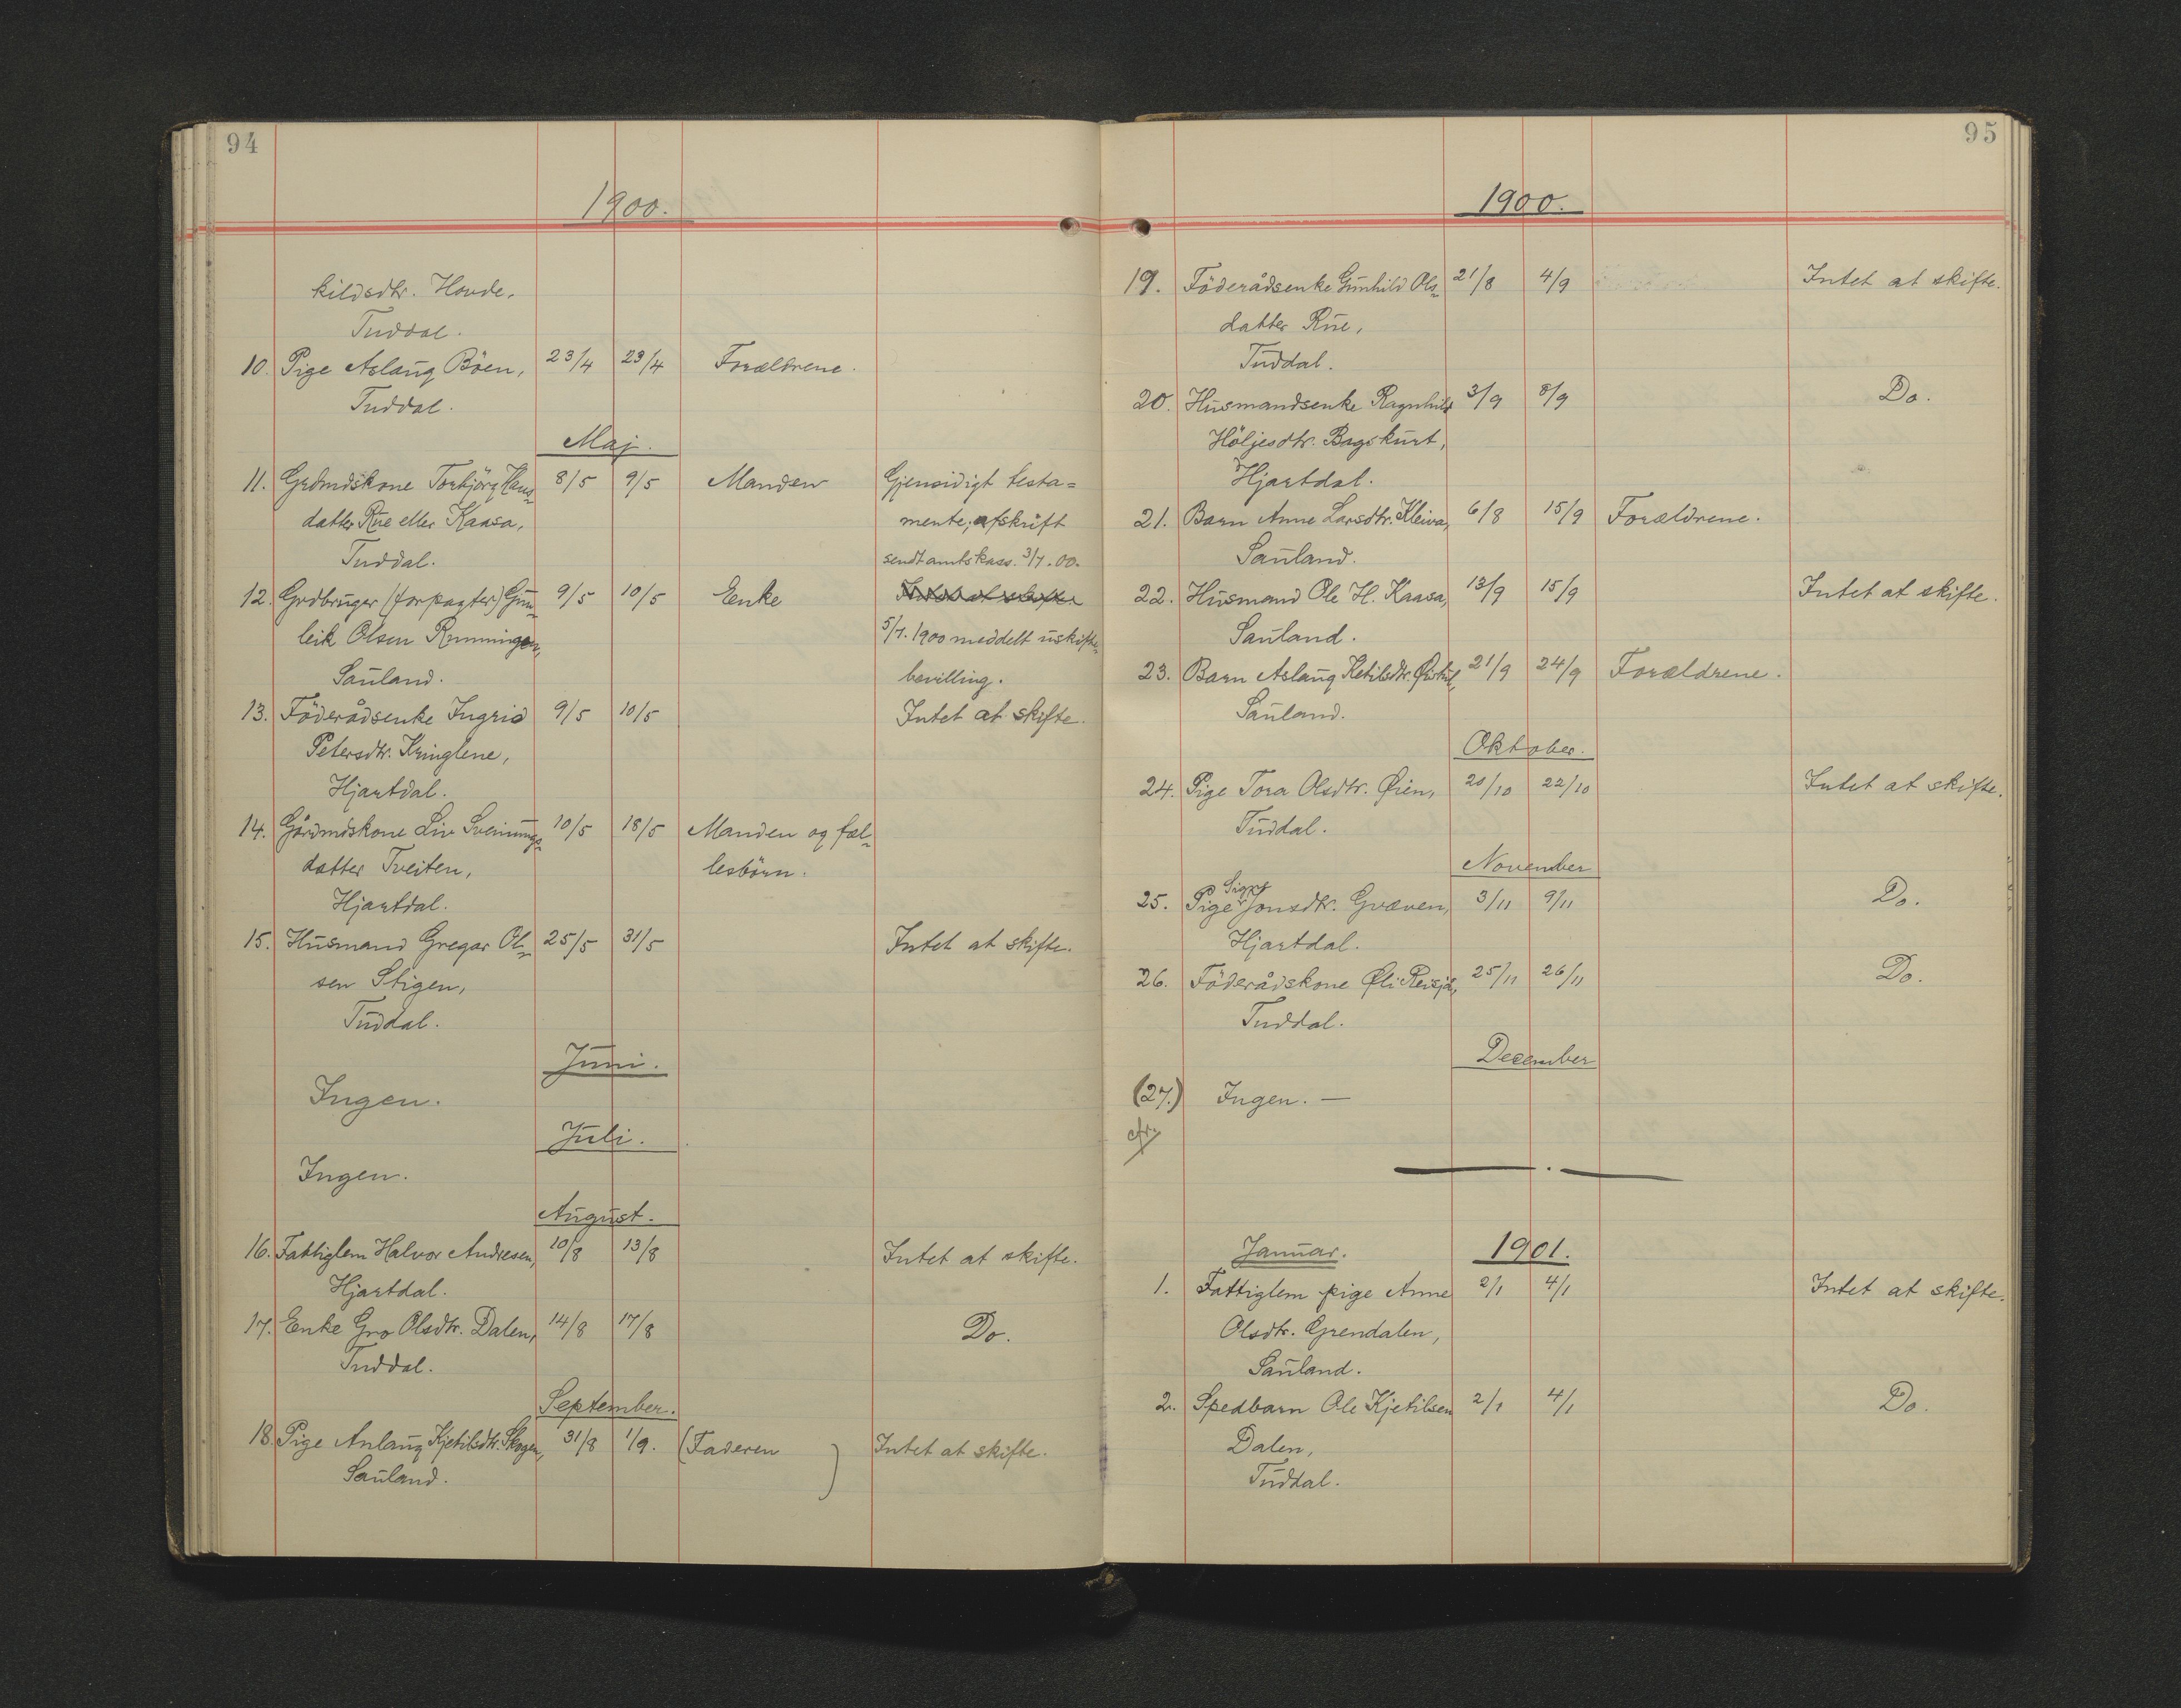 94
1900.
kildsdtr. Hovde,
Tuddal.
10. Pige Aslaug Böen, 23/4 23/4 Forældrene.
Tuddal.
Maj.
11. Grdmdskone Torbjörg Hans= 8/5 9/5 Manden Gjensidigt testa=
datter Rue eller Kaasa, mente; afskrift
Tuddal. sendt amtskass. 3/7.00.
12. Grdbruger (forpagter) Gun= 9/5 10/5 Enke Intet at skifte
leik Olsen Rmningen, 5/7. 1900 meddelt uskifte=
Sauland. bevilling.
13. Föderådsenke Ingrid 9/5 10/5 Intet at skifte.
Petersdtr. Kringlene,
Hjartdal.
14. Gårdmdskone Liv Sveinungs= 10/5 18/5 Manden og fæl=
datter Tveiten, lesbörn.
Hjartdal.
15. Husmand Gregar Ol= 25/5 31/5 Intet at skifte.
sen Stigen,
Tuddal.
Juni.
Ingen.
Juli.
Ingen.
August.
16. Fattiglem Halvor Andresen, 10/8 13/8 Intet at skifte.
Hjartdal.
17. Enke Gro Olsdtr. Dalen, 14/8 17/8 Do.
Tuddal.
September.
18. Pige Anlaug Kjetilsdtr. Skogen, 31/8 1/9. (Faderen) Intet at skifte.
Sauland.
95
1900.
19. Föderådsenke Gunhild Ols= 21/8 4/9 Intet at skifte.
datter Rue,
Tuddal.
20. Husmandsenke Ragnhild 3/9 8/9 Do.
Höljesdtr. Bagskurt,
Hjartdal.
21. Barn Anne Larsdtr. Kleiva, 6/8 15/9 Forældrene.
Sauland.
22. Husmand Ole H. Kaasa, 13/9 15/9 Intet at skifte.
Sauland.
23. Barn Aslaug Ketilsdtr. 21/9 24/9 Forældrene.
Sauland.
Oktober.
24. Pige Tora Olsdtr. Øien, 20/10 22/10 Intet at skifte.
Tuddal.
November
Signe
25. Pige Jonsdtr. Gvæven, 3/11 9/11 Do.
Hjartdal.
26. Föderådskone Øli Reisjå, 25/11 26/11 Do.
Tuddal.
December
(27.) Ingen. —
cfr.
1901.
Januar.
1. Fattiglem pige Anne 2/1 4/1 Intet at skifte.
Olsdtr. Grendalen,
Sauland.
2. Spedbarn Ole Kjetilsen 2/1 4/1 Do.
Dalen,
Tuddal.